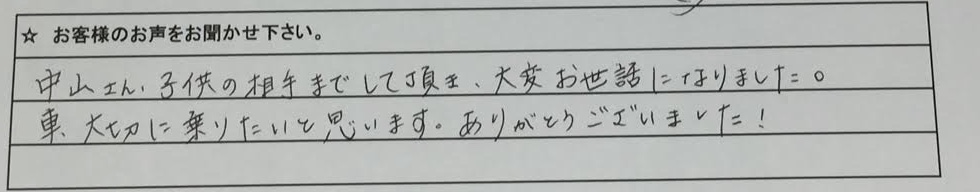 ☆ お客様のお声をお聞かせ下さい。
中山さん、子供の相手までして頂き、大変お世話になりました。
車、大切に乗りたいと思います。ありがとうございました！